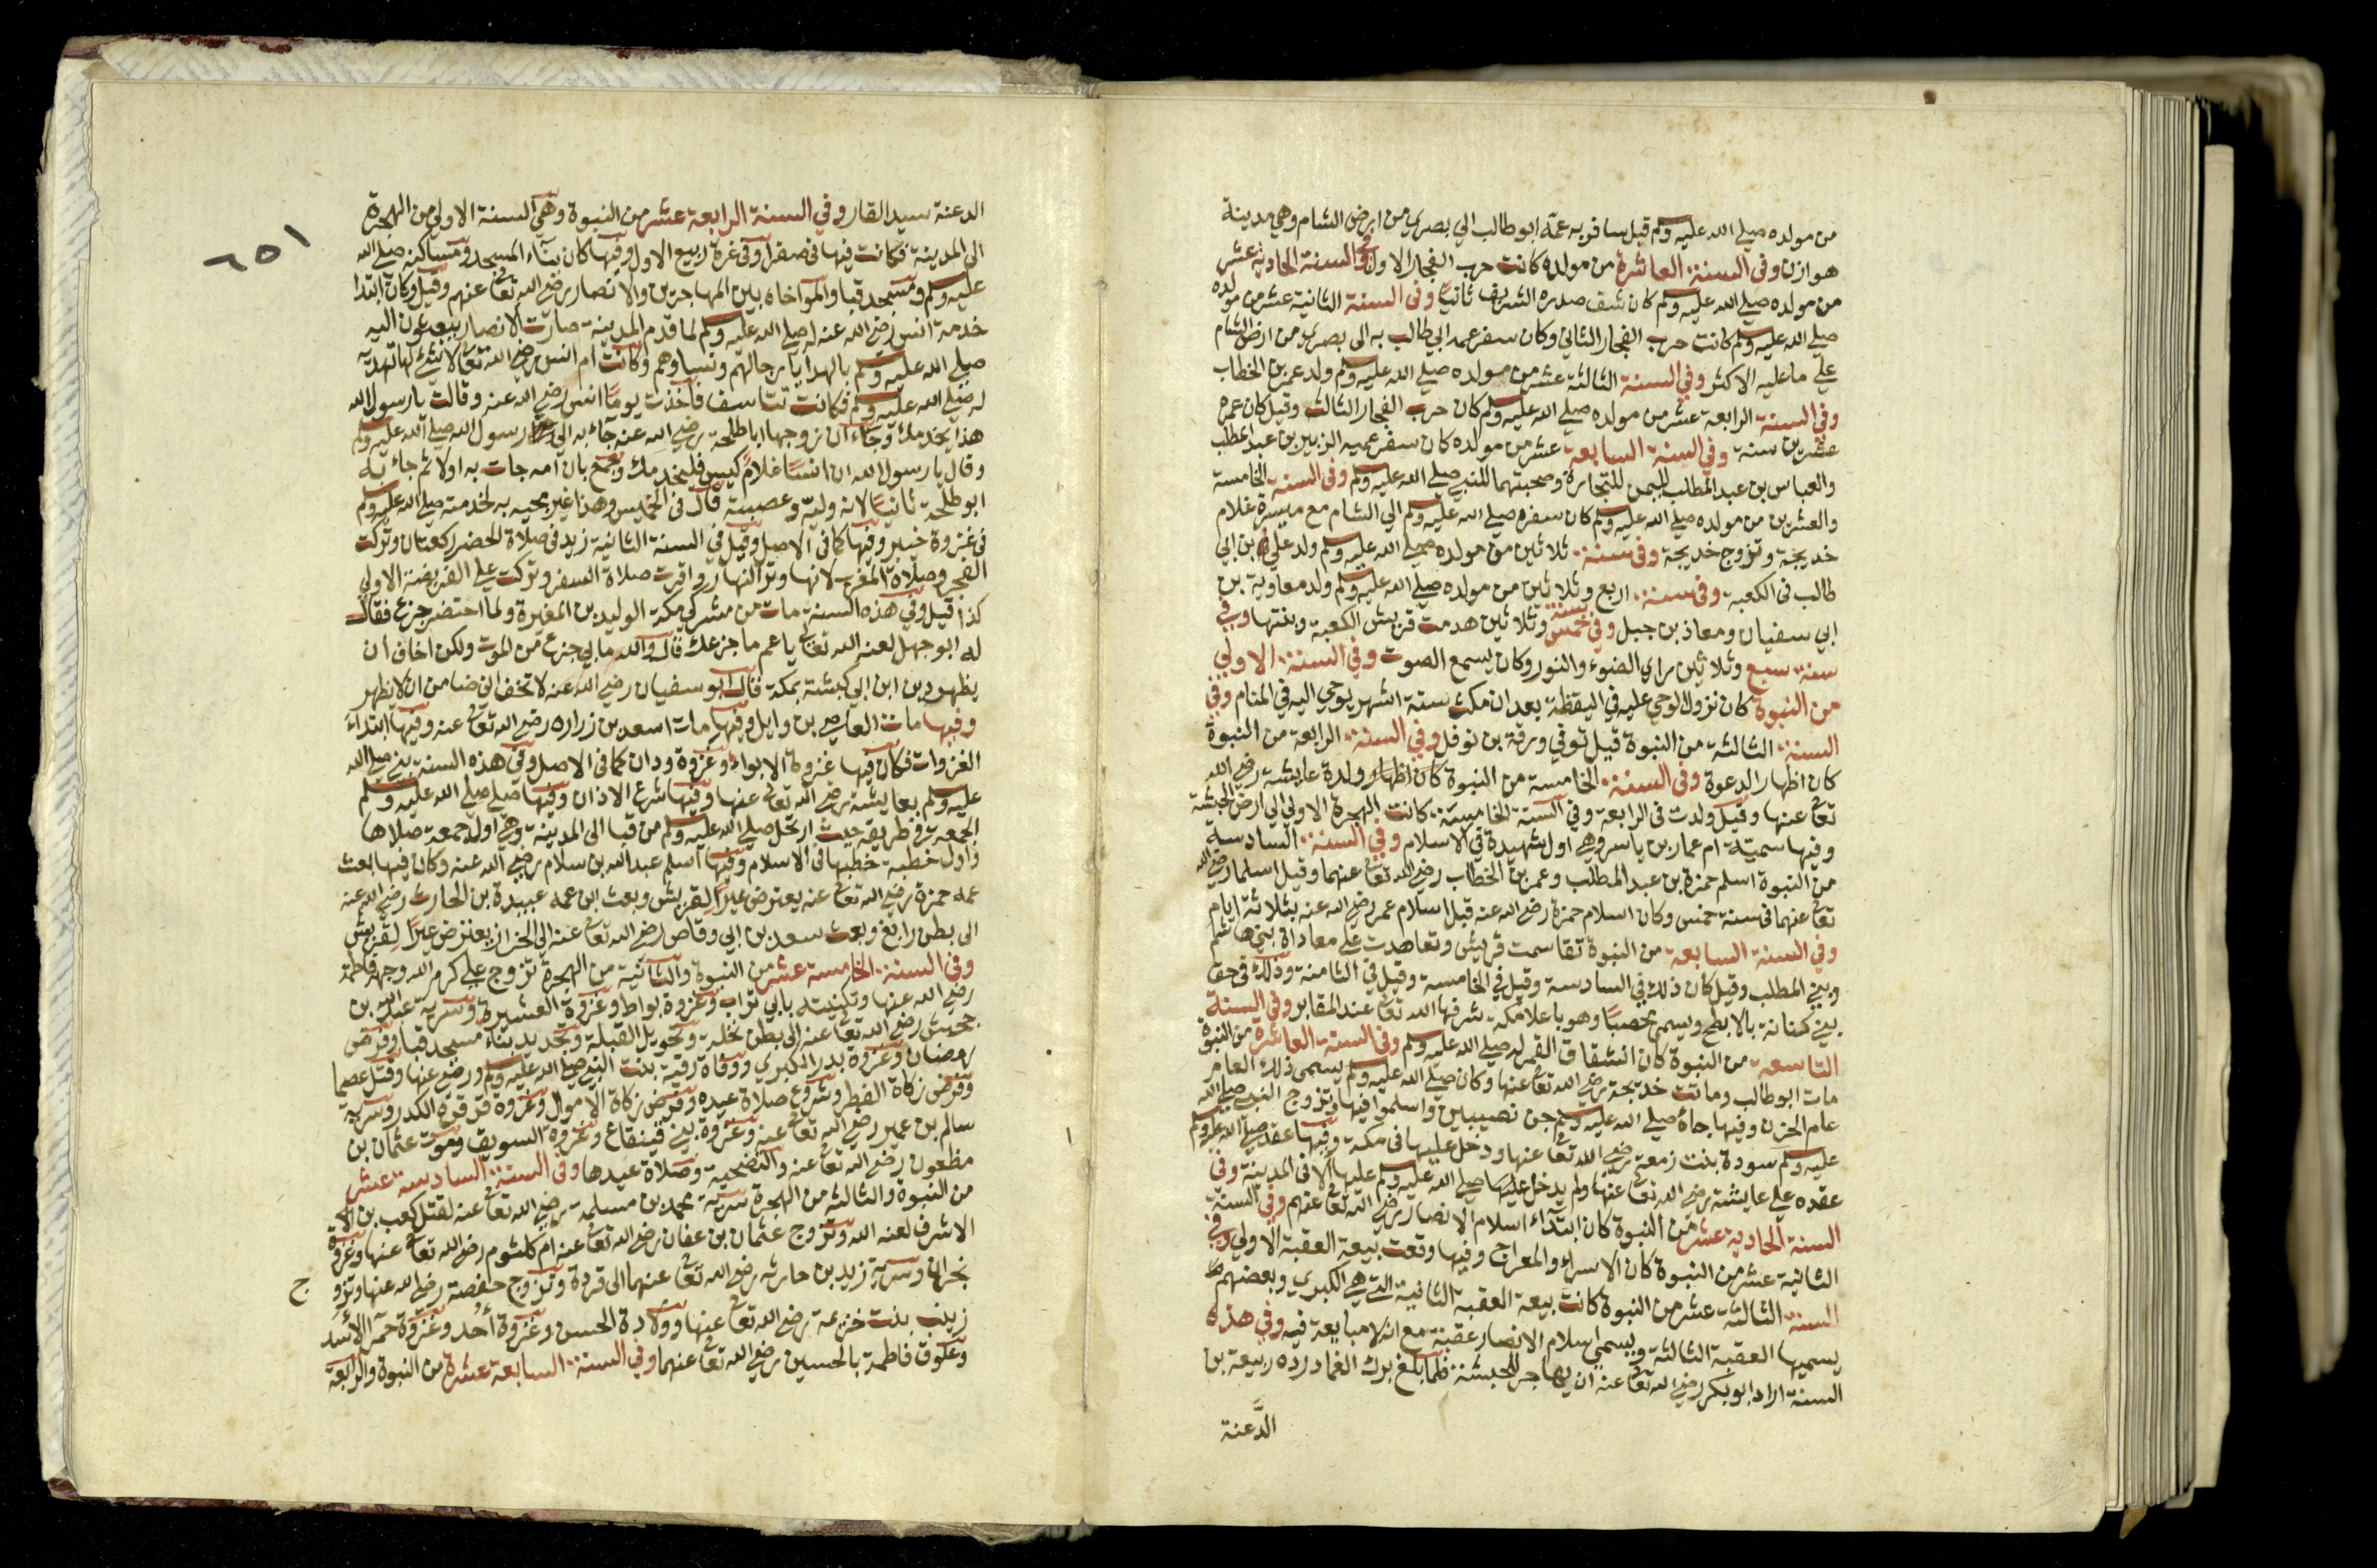 من مولده صلي الله عليه وسلم قيل سافر به عمّه ابو طالب الي بصري من ارض الشام وهي مدينة
هوازن وفى السنة العاشرة من مولده كانت حرب الفجار الاول وفي السنة الحادية عشر
من مولده صلي الله عليه وسلم كان شق صدره الشريف ثانيًا وفى السنة الثانية عشر من مولده
صلي الله عليه وسلم كانت حرب الفجار الثاني وكان سفر عمه ابي طالب به الى بصرى من ارض الشام
علي ما عليه الاكثر وفي السنة الثالثة عشر من مولده صلي الله عليه وسلم ولد عمر بن الخطاب
وفي السنة الرابعة عشر من مولده صلي الله عليه وسلم كان حرب الفجار الثالث وقيل كان عمره
عشرين سنة وفي السنة السابعة عشر من مولده كان سفر عميه الزبير بن عبد المطلب
والعباس بن عبد المطلب لليمن للتجارة وصحبتهما للنبي صلي الله عليه وسلم وفى السنة الخامسة
والعشرين من مولده صلي الله عليه وسلم كان سفره صلي الله عليه وسلم الي الشام مع ميسرة غلام
خديجة وتزوج خديجة وفى سنة ثلاثين من مولده صلي الله عليه وسلم ولد علي بن ابي
طالب فى الكعبة وفى سنة اربع وثلاثين من مولده صلي الله عليه وسلم ولد معاوية بن
ابي سفيان ومعاذ بن جبل وفي سنة خمس وثلاثين هدمت قريش الكعبة وبنتها وفي
سنة سبع وثلاثين راي الضوء والنور وكان يسمع الصوت وفي السنة الاولي
من النبوة كان نزول الوحي عليه في اليقظة بعد ان مكث ستة اشهر يوحي اليه في المنام وفي
السنة الثالثة من النبوة قيل توفي ورقة بن نوفل وفي السنة الرابعة من النبوة
كان اظهار الدعوة وفى السنة الخامسة من النبوة كان ولدة عايشة رضي الله
تعالى عنها وقيل ولدت فى الرابعة وفي السنة الخامسة كانت الهجرة الاولي الي ارض الحبشة
وفيها سميّة ام عمار بن ياسر وهي اول شهيدة في الاسلام وفي السنة السادسة
من النبوة اسلم حمزة بن عبد المطلب وعمر بن الخطاب رضي الله تعالى عنهما وقيل اسلما رضي الله
تعالى عنهما فى سنة خمس وكان اسلام حمزة رضي الله عنه قبل اسلام عمر رضي الله عنه بثلاثة ايام
وفي السنة السابعة من النبوة تقاسمت قريش وتعاهدت علي معاداة بني هاشم
وبني المطلب وقيل كان ذلك في السادسة وقيل في الخامسة وقيل في الثامنة وذلك فى حق
بني كنانة بالابطح ويسمى محصبًا وهو باعلا مكة شرفها الله تعالى عند المقابر وفي السنة
التاسعة من النبوة كان انشقاق القمر له صلي الله عليه وسلم وفى السنة العاشرة من النبوة
مات ابو طالب وماتت خديجة رضي الله تعالى عنها وكان صلي الله عليه وسلم يسمى ذلك العام
عام الحزن وفيها جاه صلي الله عليه وسلم جن نصيبين واسلموا فيها وتزوج النبي صلي الله
عليه وسلم سودة بنت زمعة رضي الله تعالى عنها ودخل عليها فى مكة وفيها عقد صلي الله عليه وسلم
عقده علي عايشة رضي الله تعالى عنها ولم يدخل عليها صلي الله عليه وسلم عليها الا فى المدينة وفي
السنة الحادية عشر من النبوة كان ابتداء اسلام الانصار رضي الله تعالى عنهم وفي السنة
الثانية عشر من النبوة كان الاسراء والمعراج وفيها وقعت بيعة العقبة الاولي وفي
السنة الثالثة عشر من النبوة كانت بيعة العقبة الثانية التي هي الكبري وبعضهم
يسميها العقبة الثالثة ويسمي اسلام الانصار عقبة مع انه لا مبايعة فيه وفي هذه
السنة اراد ابو بكر رضي الله تعالى عنه ان يهاجر للحبشة فلما بلغ برك الغماد رده ربيعة بن
الدَّعنة
١٥٦
الدعنة سيد القار وفي السنة الرابعة عشر من النبوة وهي السنة الاولي من الهجرة
الى المدينة فكانت فيها فى صفر او فى غرة ربيع الاول وفيها كان بناء المسجد ومساكنه صلي الله
عليه وسلم ومسجد قبا والمواخاه بين المهاجرين والانصار رضي الله تعالى عنهم وقيل وكان ابتدا
خدمة انس رضي الله عنه له صلي الله عليه وسلم لما قدم المدينة صارت الانصار يبعثون اليه
صلي الله عليه وسلم بالهدايا رجالهم ونساوهم وكانت ام انس رضي الله تعالى لا شئ لها تهديه
له صلي الله عليه وسلم فكانت تتاسف فاخذت يومًا انس رضي الله عنه وقالت يا رسول الله
هذا يخدمك وجاء ان زوجها ابا طلحة رضي الله عنه جآء به الي رسول الله صلي الله عليه وسلم
وقال يا رسول الله ان انسًا غلامٌ كيس فليخدمك وجمع بان امه جات به اولا ثم جاء به
ابو طلحة ثانيًا لانه وليه وعصبته قال فى الخميس وهذا غير مجيه به لخدمته صلي الله عليه وسلم
فى غزوة خيبر وفيها كما فى الاصل وقيل في السنة الثانية زيد فى صلاة الحضر ركعتان وتركت
الفجر وصلاة المغرب لانها وتر النهار واقرت صلاة السفر وتركت علي الفريضة الاولي
كذا قيل وفي هذه السنة مات من مشركي مكة الوليد بن المغيرة ولما احتضر جزع فقال
له ابو جهل لعنه الله تعالى يا عم ما جزعك قال والله ما بي جزع من الموت ولكن اخاف ان
يظهر دين ابن ابي كبشة بمكة فقال ابو سفيان رضي الله عنه لا تخف اني ضامن ان لا يظهر
وفيها مات العاص بن وايل وفيها مات اسعد بن زراره رضي الله تعالى عنه وفيها ابتداء
الغزوات فكان فيها غزوة الابواء وغزوة ودان كما فى الاصل وفى هذه السنة بني صلي الله
عليه وسلم بعايشة رضي الله تعالى عنها وفيها شرع الاذان وفيها صلي صلي الله عليه وسلم
الجمعة في طريقه حيث ارتحل صلي الله عليه وسلم من قبا الى المدينة وهي اول جمعة صلاها
واول خطبة خطبها فى الاسلام وفيها اسلم عبد الله بن سلام رضي الله عنه وكان فيها بعث
عمه حمزة رضي الله تعالى عنه يعترض عيرًا لقريش وبعث ابن عمه عبيدة بن الحارث رضي الله عنه
الى بطن رابغ وبعث سعد بن ابي وقاص رضي الله تعالى عنه الى الخراز يعترض عيرًا لقريش
وفي السنة الخامسة عشر من النبوة والثانية من الهجرة تزوج علي كرم الله وجهه فاطمة
رضي الله عنها وتكنيته بابي تراب وغزوة بواط وغزوة العشيرة وسرية عبد الله بن
جحش رضي الله تعالى عنه الى بطن نخلة وتحويل القبلة وتجديد بناء مسجد قبا وفرض
رمضان وغزوة بدر الكبري ووفاة رقية بنت النبي صلي الله عليه وسلم ورضي عنها وقتل عصما
وفرض زكاة الفطر وشروع صلاة عيده وفرض زكاة الاموال وغزوة قرقرة الكدر وسرية
سالم بن عمير رضي الله تعالى عنه وغزوة بني قينقاع وغزوة السويق وموت عثمان بن
مظعون رضي الله تعالى عنه والتضحية وصلاة عيدها وفى السنة السادسة عشر
من النبوة والثالثة من الهجرة سرية محمد بن مسلمة رضي الله تعالى عنه لقتل كعب بن
الاشرف لعنه الله وتزوج عثمان بن عفان رضي الله تعالى عنه ام كلثوم رضي الله تعالى عنها وغزوة
بحران وسرية زيد بن حارثه رضي الله تعالى عنهما الى قردة وتزوج حفصة رضي الله عنها وتزو ج
زينب بنت خزيمة رضي الله تعالى عنها وولادة الحسن وغزوة أُحد وغزوة حمرآ الأسَد
وعلوق فاطمة بالحسين رضي الله تعالى عنهما وفي السنة السابعة عشرة من النبوة والرابعة